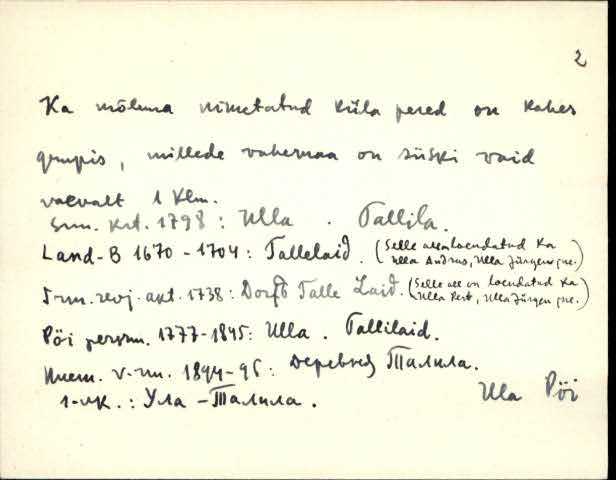 2
Ka mõlema nimetatud küla pered on kahes
grupis, millede vahemaa on siiski vaid
vaevalt 1 klm.
krt. 1798: Ulla . Tallila.
Land-B 1670-1704: Tallelaid. (Selle all loendatud ka
Ulla Andrus, Ulla Jürgen jne.)
rev. akt. 1738: Dorff Talle Laid. (Selle all on loendatud ka
Ulla Pert, Ulla Jürgen jne.)
Pöi persnm. 1777-1845: Ulla . Tallilaid.
v-nm. 1894-96: деревня Талила.
1-vk.: Ула - Талила.
Ula Pöi